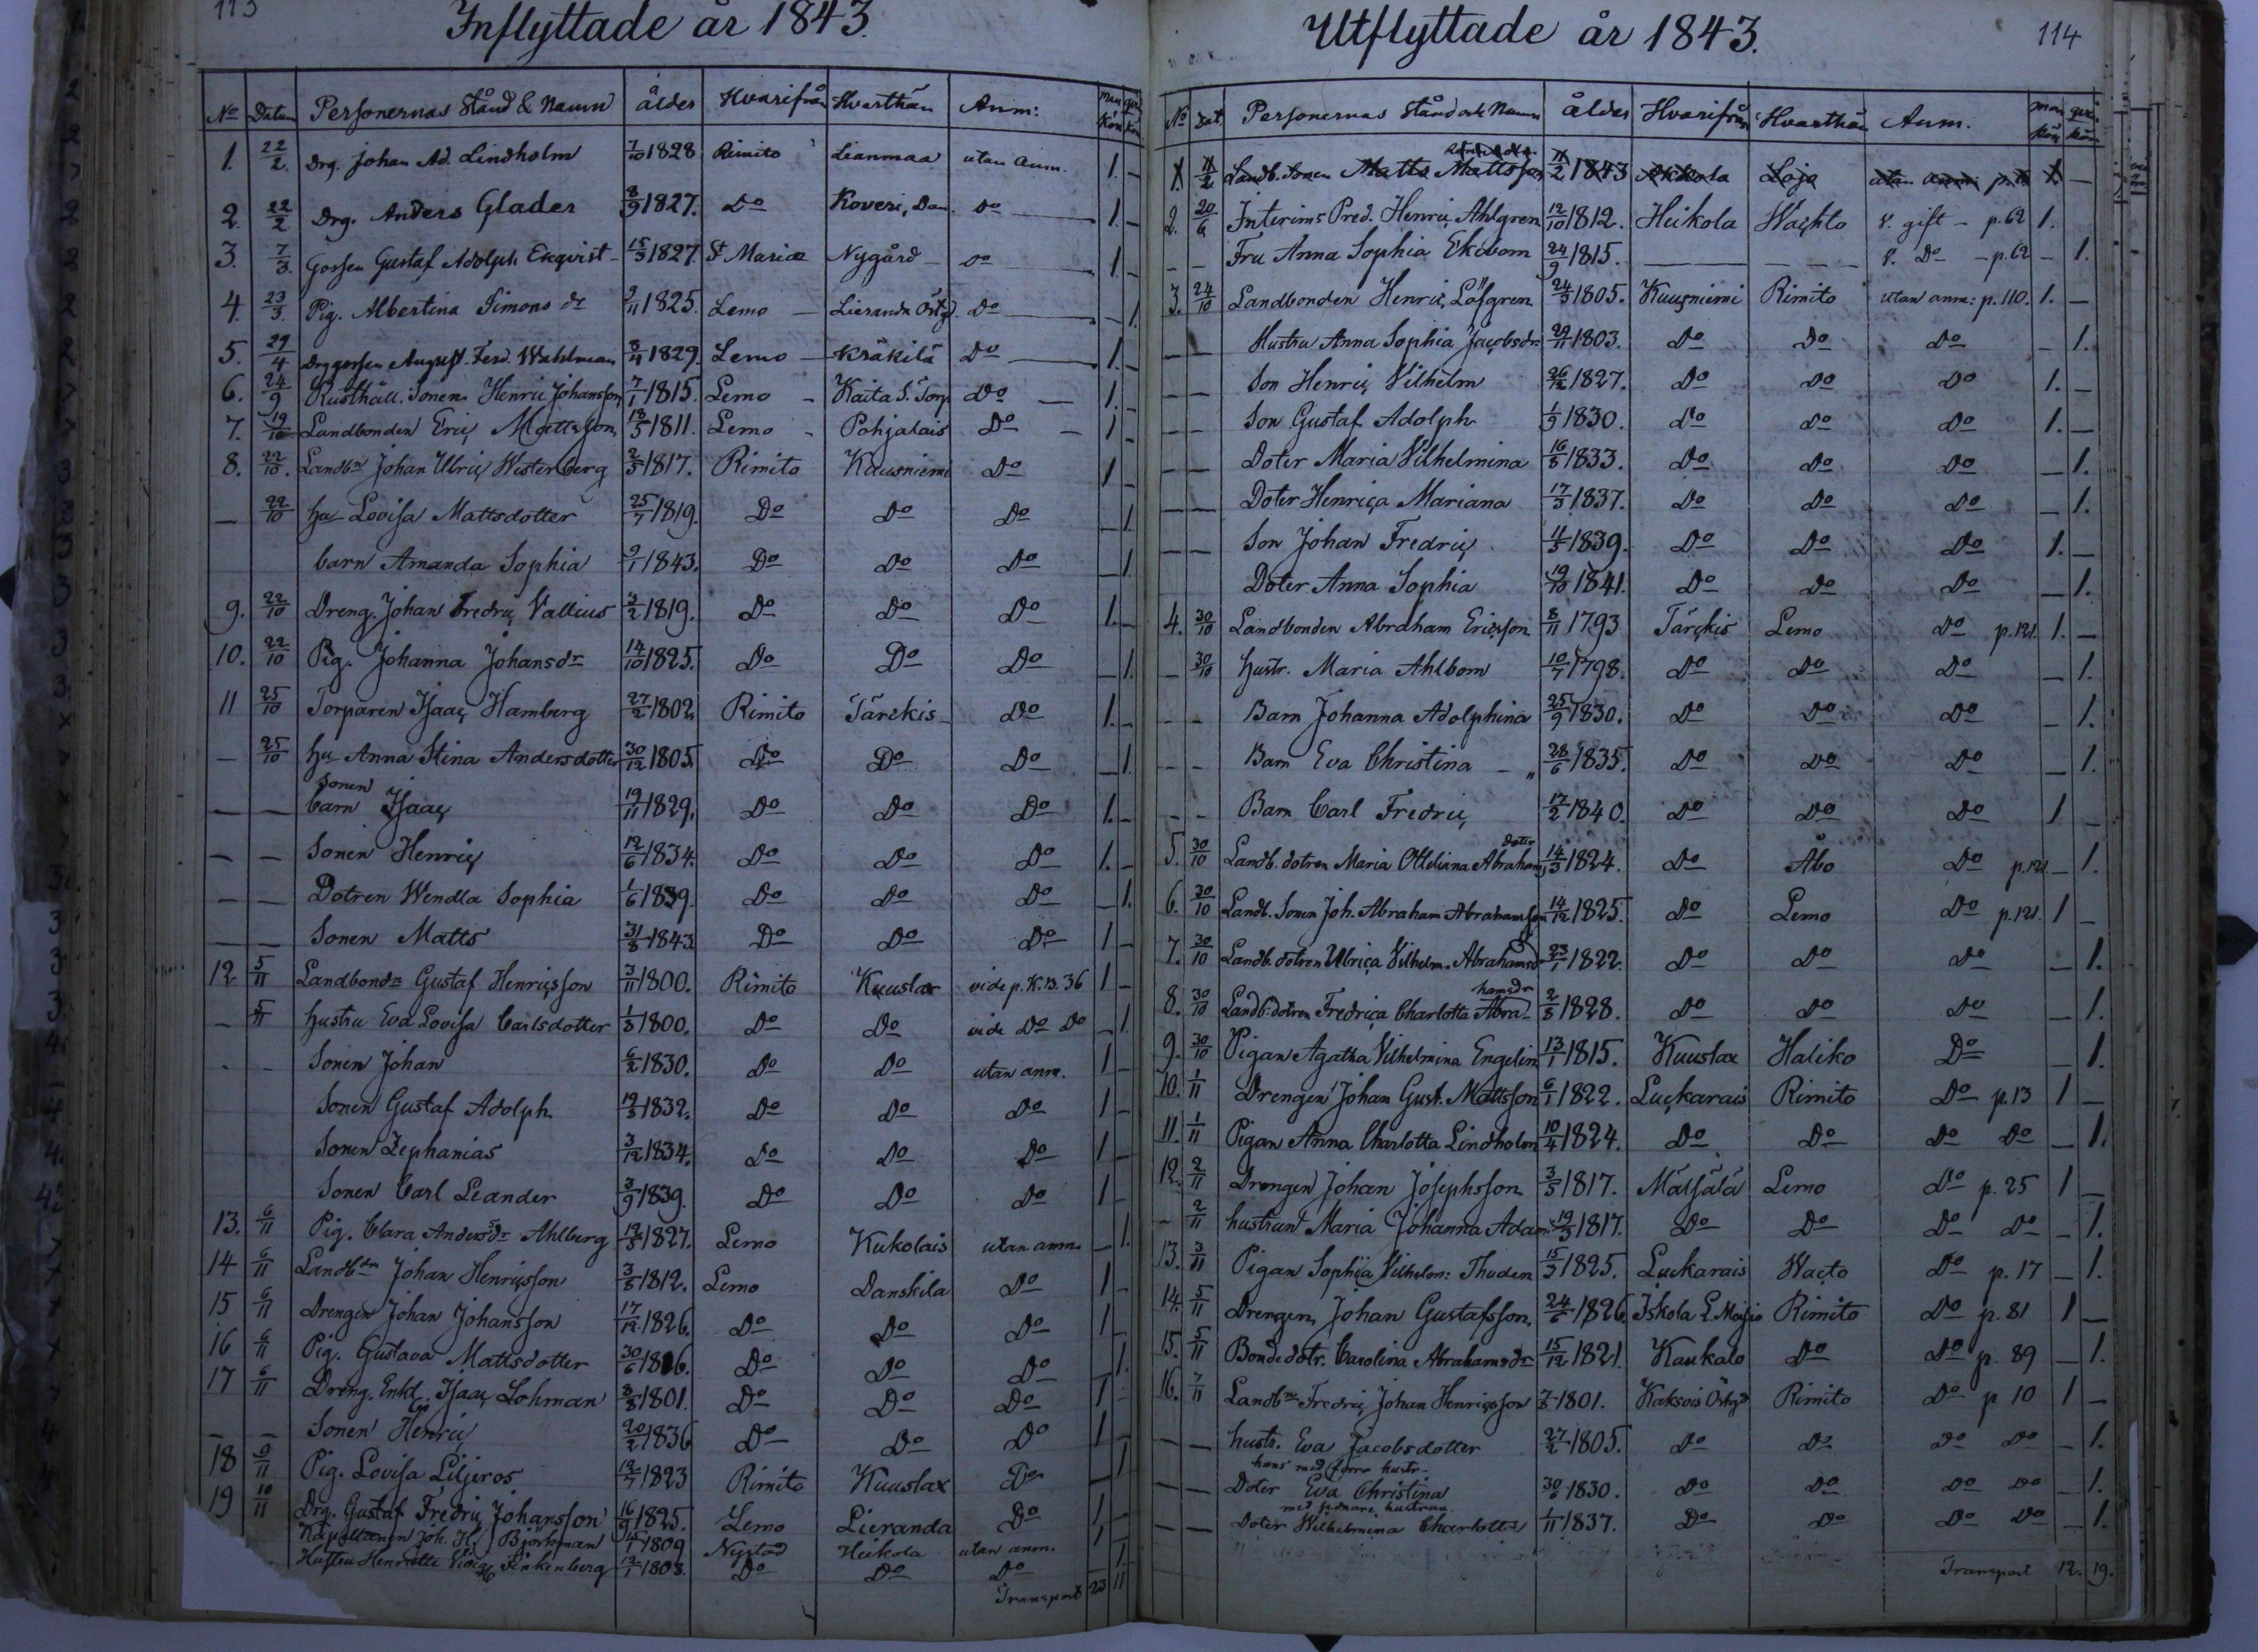 113
Inflyttade år 1843.
No Datum Personernas Stånd & Namn ålder Hvarifrån Hvarthän Anm: man kön qvi kön
1. 22/2. Drg. Johan Ad. Lindholm 7/10 1828 Rimito Lianmaa utan anm. 1. –
2. 22/2 Drg. Anders Glader 8/9 1827. Do Koveri, Dan. Do 1. –
3. 7/3. Gossen Gustaf Adolph Ekqvist 15/3 1827. St Mariæ Nygård Do 1. –
4. 23/3. Pig. Albertina Simons dr 9/11 1825. Lemo Lieranda Östg. Do – 1.
5. 29/4 Drg gossen August Ferd. Wahlman 8/4 1829. Lemo Kräkilä Do 1. –
6. 24/9 Rusthåll. Sonen Henric Johansson 7/1 1815. Lemo Kaita S. Torp Do 1. –
7. 19/10 Landbonden Eric Mattsson 18/5 1811. Lemo Pohjalais Do 1 –
8. 22/10. Landbn Johan Ulric Westenberg 2/5 1817. Rimito Kuusniemi Do 1 –
– 22/10 hu Lovisa Mattsdotter 25/7 1819. Do Do Do – 1.
barn Amanda Sophia 9/1 1843. Do Do Do – 1.
9. 22/10 Dreng. Johan Fredric Vallius 3/2 1819. Do Do Do 1. –
10. 22/10 Pig. Johanna Johansdr 14/10 1825. Do Do Do – 1.
11 25/10 Torparen Isaac Hamberg 27/2 1802. Rimito Tärckis Do 1. –
– 25/10 hu Anna Stina Andersdotter 30/12 1805. Do Do Do – 1.
Sonen
– – barn Isaac 19/11 1829. Do Do Do 1. –
– – Sonen Henric 12/6 1834. Do Do Do 1. –
– – Dotren Wendla Sophia 1/6 1839. Do Do Do – 1.
– – Sonen Matts 31/8 1843. Do Do Do 1 –
12. 5/11 Landbondn Gustaf Henricsson 3/11 1800. Rimito Kuuslax vide p. K.B. 36 1 –
– 5/11 hustru Eva Lovisa Carlsdotter 1/3 1800. Do Do vide Do Do – 1.
- - Sonen Johan 6/2 1830. Do Do utan anm. 1 –
Sonen Gustaf Adolph 19/3 1832. Do Do Do 1 –
Sonen Zephanias 3/12 1834. Do Do Do 1 –
Sonen Carl Leander 3/9 1839. Do Do Do 1 –
13. 6/11 Pig. Clara Andersdr Ahlberg 12/3 1827. Lemo Kukolais utan anm. – 1.
14 6/11 Landbdn Johan Henricsson 3/8 1812. Lemo Danskila Do 1 –
15 6/11 Drengen Johan Johansson 17/12 1826. Do Do Do 1 –
16 6/11 Pig. Gustava Mattsdotter 30/6 1816. Do Do Do 1.
17 6/11 Dreng. Enkl. Isaac Lohman 8/8 1801. Do Do Do 1 –
– – Sonen Henric 20/2 1836 Do Do Do 1 –
18 9/11 Pig. Lovisa Liljeros 12/7 1823 Rimito Kuuslax Do – 1
19 10/11 Drg. Gustaf Fredric Johansson 16/9 1825. Lemo Lieranda Do 1 –
Kapellanen Joh. H. Björkman 15/1 1809 Nystad Heikola utan anm. 1
Hustru Henriette Sinkenberg 12/1 1803. Do Do Do 1.
Transport 23 11
114
Utflyttade år 1843.
No Dat. Personernas Stånd och Namn ålder Hvarifrån Hvarthän Anm. man kön qvi. kön
1. 11/2 Landb. Sonen Matts Mattsson 11/2 1843 Akkola Lojo utan anm. 1 –
2. 20/6 Interims Pred. Henric Ahlgren 12/10 1812. Heikola Wachto V. gift – p. 62 1.
– – Fru Anna Sophia Ekebom 24/9 1815. V. Do – p. 62 – 1.
3. 24/10 Landbonden Henric Löfgren 24/3 1805. Kuusniemi Rimito utan anm: p. 110. 1. –
– – Hustru Anna Sophia Jacobsdr 29/11 1803. Do Do Do – 1.
– – Son Henric Vilhelm 26/12 1827. Do Do Do 1. –
– – Son Gustaf Adolph 1/9 1830. Do Do Do 1. –
– – Doter Maria Vilhelmina 16/8 1833. Do Do Do – 1.
– – Doter Henrica Mariana 17/3 1837. Do Do Do – 1.
– – Son Johan Fredric 11/5 1839. Do Do Do 1. –
Doter Anna Sophia 19/10 1841. Do Do Do – 1.
4. 30/10 Landbonden Abraham Ericsson 8/11 1793 Tärckis Lemo Do p. 121. 1. –
– 30/10 hustr. Maria Ahlbom 10/7 1798. Do Do Do – 1.
- - Barn Johanna Adolphina 25/9 1830. Do Do Do – 1.
- - Barn Eva Christina 28/6 1835. Do Do Do – 1.
- - Barn Carl Fredric 17/2 1840. Do Do Do 1 –
doter
5. 30/10 Landb. dotren Maria Ottiliana Abrahams 14/3 1824. Do Åbo Do p. 121. – 1.
6. 30/10 Landb. Sonen Joh. Abraham Abrahamsson 14/12 1825. Do Lemo Do p. 121. 1 –
7. 30/10 Landb. dotren Ulrica Vilhelm. Abrahamsd 23/1 1822. Do Do Do – 1.
hamsdr
8. 30/10 Landb. dotren Fredrica Charlotta Abra- 2/8 1828. Do Do Do – 1.
9. 30/10 Pigan Agatha Vilhelmina Engelin 13/1 1815. Kuuslax Haliko Do – 1.
10. 1/11 Drengen Johan Gust. Mattsson 6/1 1822. Luckarais Rimito Do p. 13 1 –
11. 1/11 Pigan Anna Charlotta Lindholm 10/4 1824. Do Do Do Do – 1.
12. 2/11 Drengen Johan Josephsson 3/5 1817. Mälsälä Lemo Do p. 25 1 –
- 2/11 hustrun Maria Johanna Adam 19/3 1817. Do Do Do Do – 1.
13. 3/11 Pigan Sophia Vilhelm: Thuden 15/3 1825. Luckarais Wacto Do p. 17 – 1.
14. 5/11 Drengen Johan Gustafsson 24/6 1826. Iskola L. Moisio Rimito Do p. 81 1 –
15. 5/11 Bondedotr. Carolina Abrahamsdr 15/12 1821. Kaukalo Do Do p. 89 – 1.
16. 7/11 Landbn Fredric Johan Henricsson 7/8 1801. Kaksois Östgd Rimito Do p 10 1 –
– – hustr. Eva Jacobsdotter 27/2 1805. Do Do Do Do – 1.
hans med förra hustr.
– – Doter Eva Christina 30/6 1830. Do Do Do Do – 1.
med sednare hustrun.
– – Doter Wilhelmina Charlotta 1/11 1837. Do Do Do Do – 1.
Transport 12. 19.